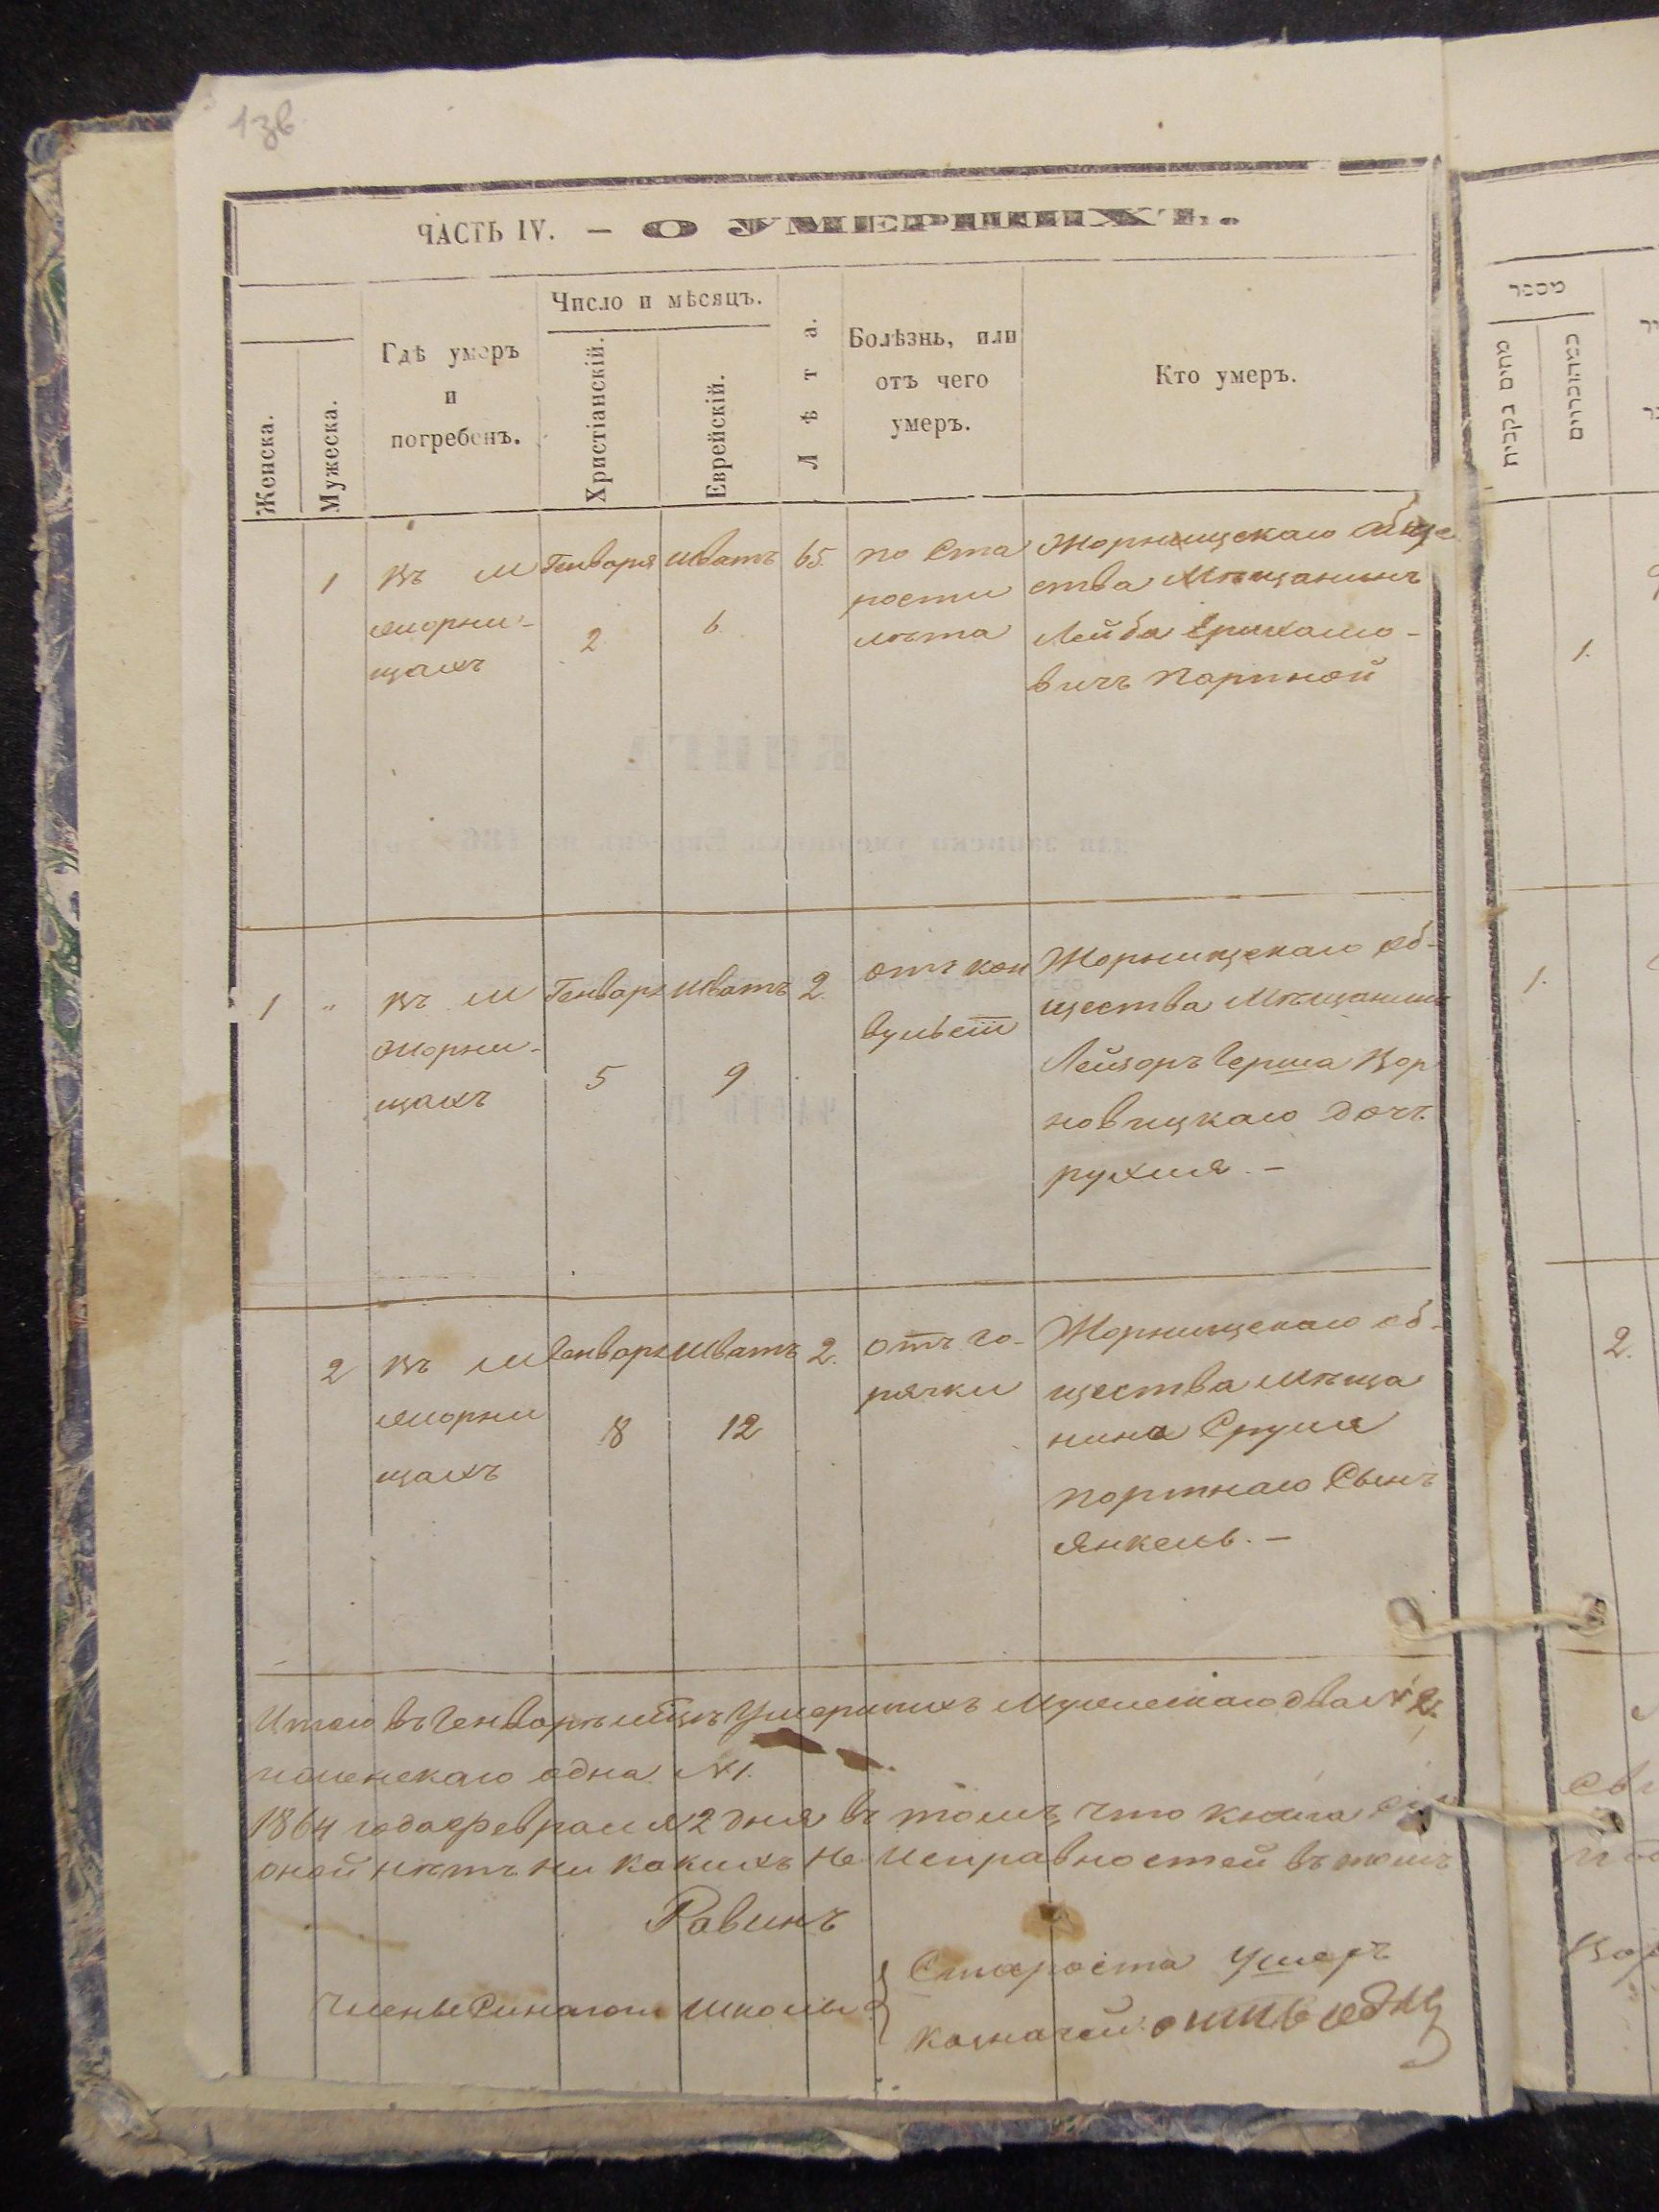 1зв
ЧАСТЬ IV. — О УМЕРШИХЪ.
Женска.
Мужеска.
Гдѣ умеръ
и
погребенъ.
Число и мѣсяцъ.
Христіанскій.
Еврейскій.
Лѣта.
Болѣзнь, или
отъ чего
умеръ.
Кто умеръ.
1
въ м
жорни-
щахъ
Генваря
2
Шватъ
6
65.
по ста
рости
лѣта
Жорнищскаго обще
ства Мѣщанинъ
Лейба
вичъ Портной
1
"
въ м
жорни-
щахъ
Генваря
5
Шватъ
9
2.
отъ кон
вульсіи
Жорнищскаго об-
щества Мѣщанинъ
Лейзоръ Герша Вор
новицкаго дочь
рухля. —
2
въ м
жорни
щахъ
Генваря
8
Шватъ
12
2.
отъ го-
рячки
Жорнищскаго об-
щества мѣща
нина Сруля
портнаго Сынъ
Янкель. —
Итого въ Генварѣ мцѣ Умершихъ Мужескаго два № 2.
женскаго одна № 1.
1864 года февраля 2 дня въ томъ, что книга
оной нѣтъ ни какихъ не исправностей въ томъ
Равинъ
Члены Синагоги Школы
Староста Ушеръ
казначей
מספר
נקבים
זכרים
1.
1.
2.